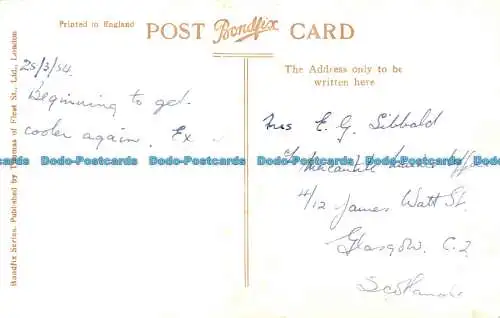 Printed in England
POST Bondfix CARD
25/3/54.
Beginning to get
cooler again. Ex
The Address only to be
written here
Mrs E. G. Sibbald
c/o Mercantile
4/12 James Watt St.
Glasgow. C.2
Scotland
Bondfix Series. Published by Thomas of Fleet St., Ltd., London
Dodo-Postcards Dodo-Postcards Dodo-Postcards Dodo-Postcards Dodo-Postcards